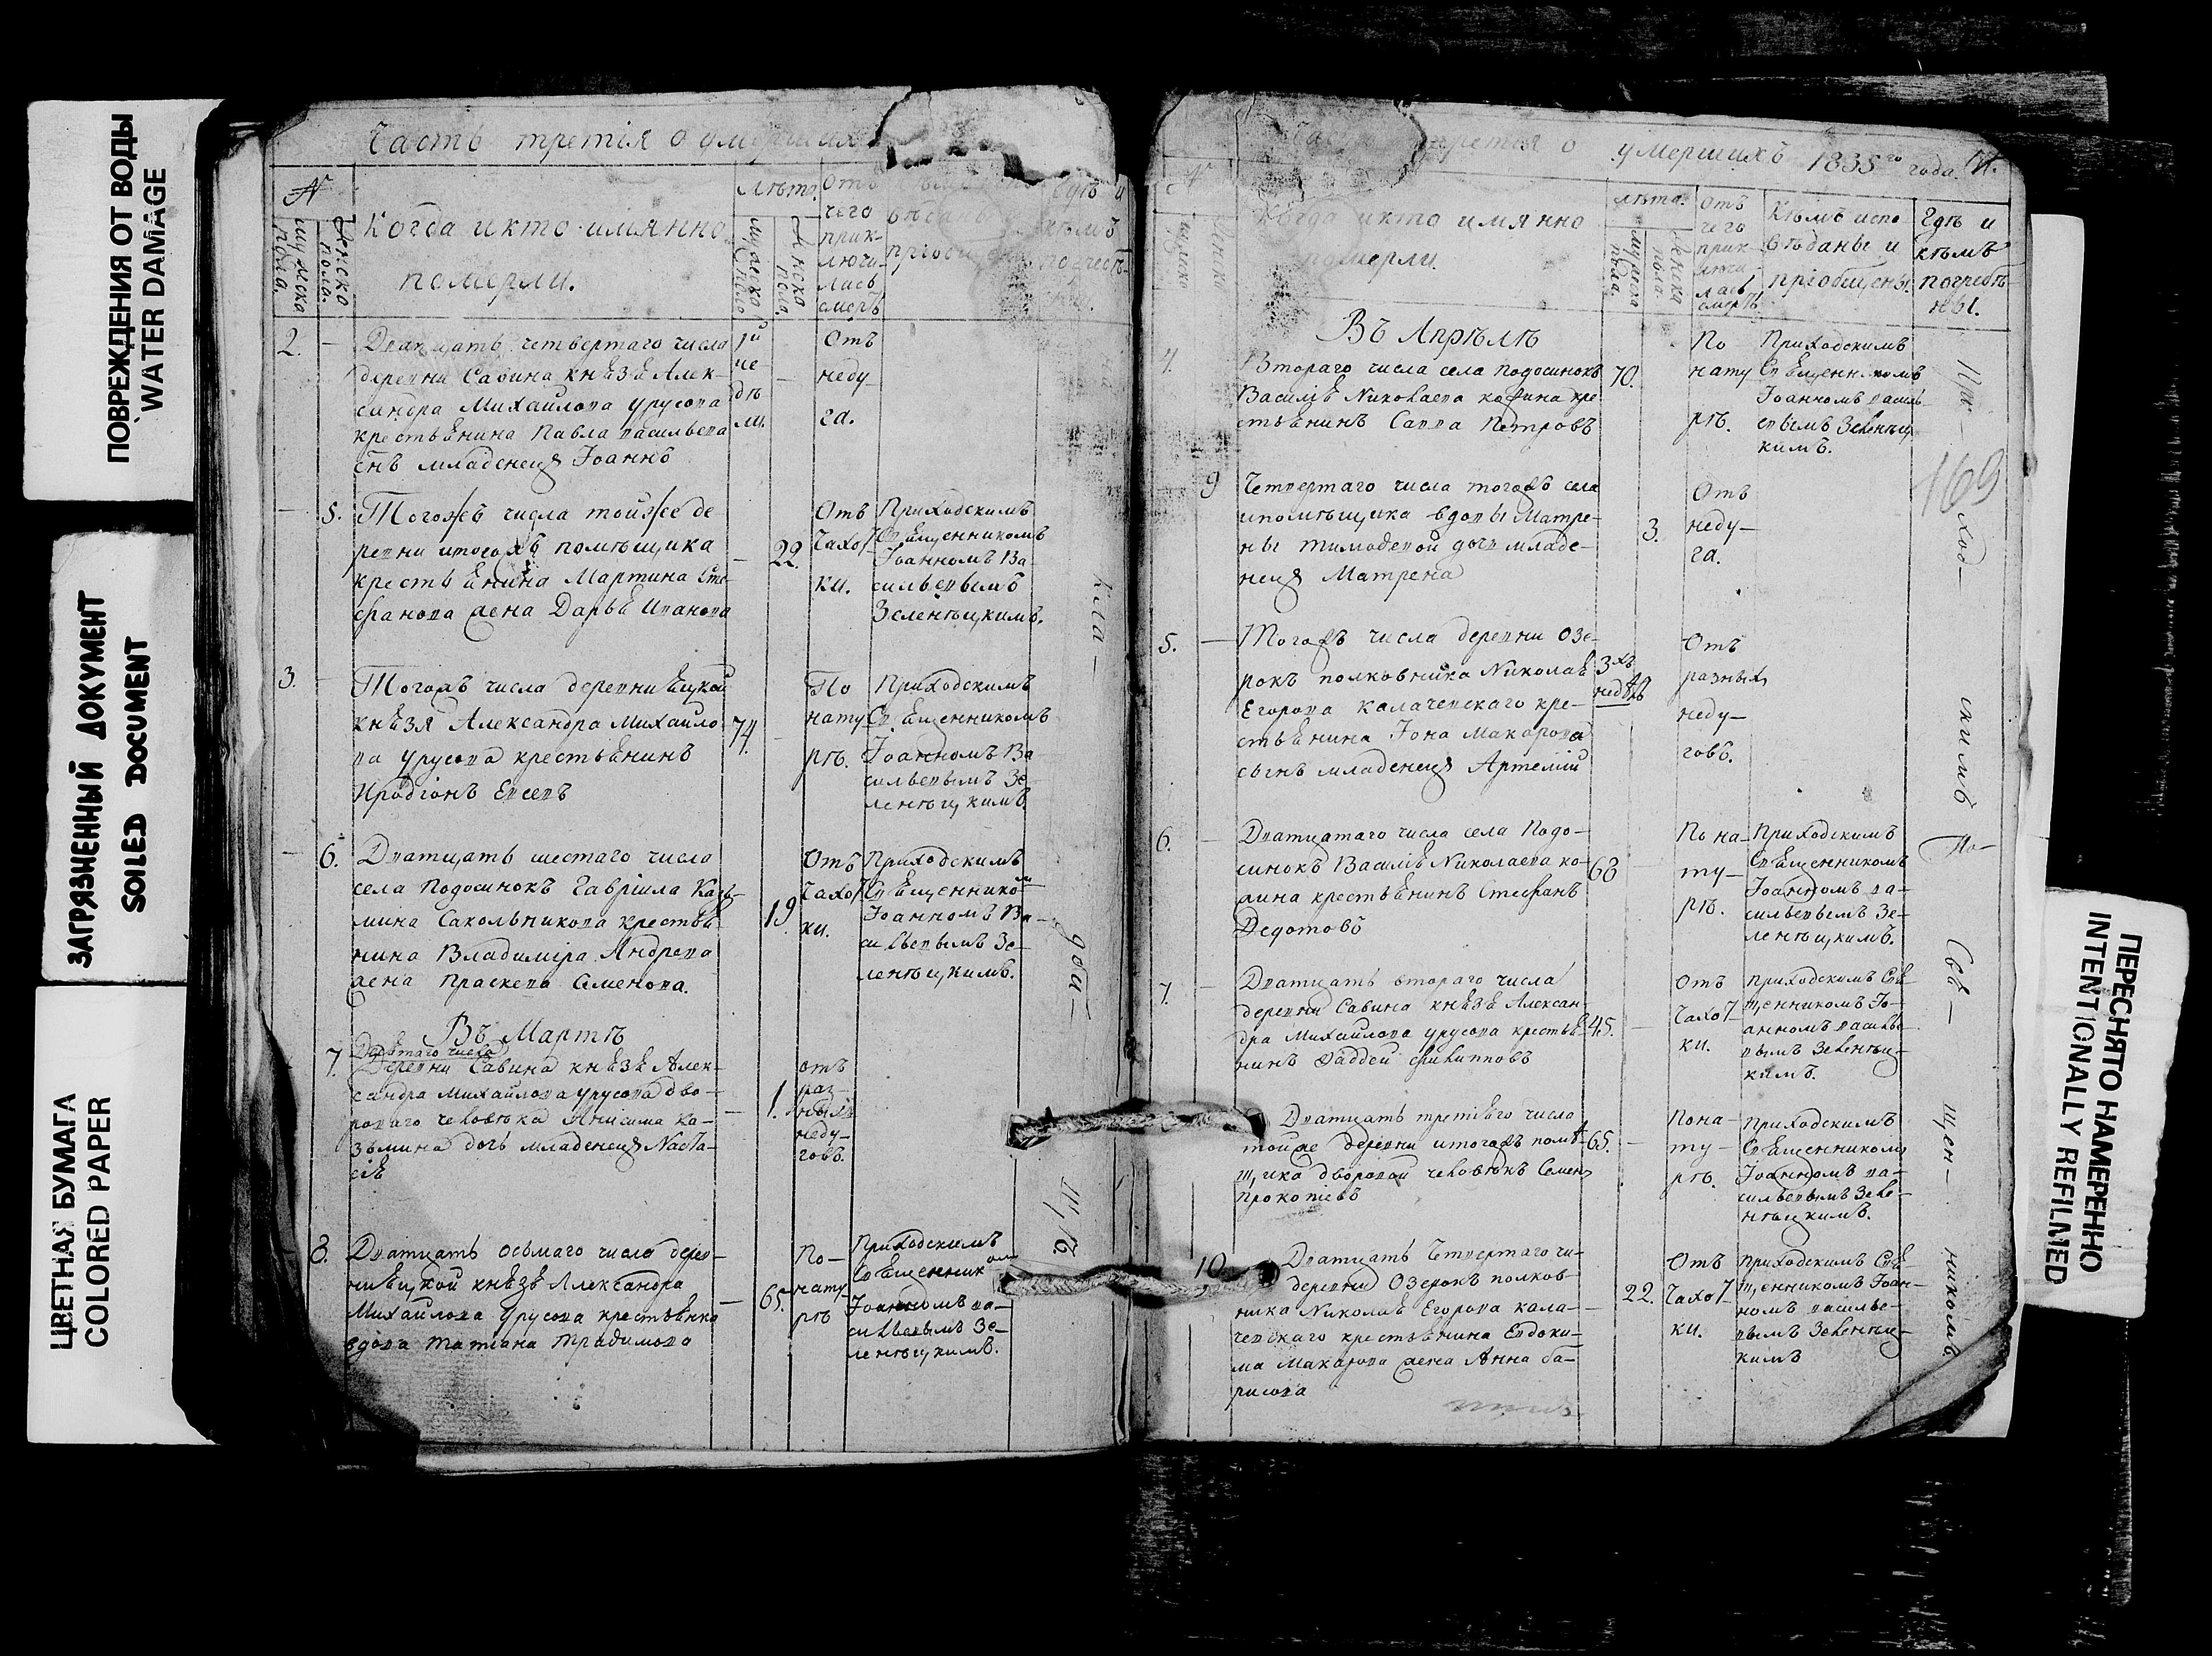 ПОВРЕЖДЕНИЯ ОТ ВОДЫ
WATER DAMAGE
ЗАГРЯЗНЕННЫЙ ДОКУМЕНТ
SOILED DOCUMENT
ЦВЕТНАЯ БУМАГА
COLORED PAPER
Часть третія о умершихъ
№
мужеска пола.
женска пола.
Когда и кто имянно
померли.
Лѣта.
Отъ
чего
прик-
лючи-
лась
смерть
гдѣ и
кѣмъ
2.
Дватцать четвертаго числа
деревни Савина князя Алек-
сандра Михайлова Урусова
крестьянина Павла васильева
сынъ младенецъ Іоаннъ
Отъ
неду-
га.
5.
Тогожъ числа тойже де
ревни итогожъ помѣщика
крестьянина Мартина Сте-
фанова жена Дарья Иванова
22.
Отъ
Чахот
ки.
Приходскимъ
Священникомъ
Іоанномъ Ва
сильевымъ
Зеленецкимъ.
3.
Тогожъ числа деревни Ецкой
князя Александра Михайло
ва Урусова крестьянинъ
Иродіонъ Евсевъ
74.
По
нату
рѣ.
Приходскимъ
Священникомъ
Іоанномъ Ва
сильевымъ Зе
ленецкимъ.
6.
Дватцать шестаго числа
села Подосинокъ Гавріила Казь-
мина Сакольникова крестья-
нина Владиміра Андрева
жена Праскева Семенова.
19.
Отъ
Чахот
ки.
Приходскимъ
Священникомъ
Іоанномъ Ва-
сильевымъ Зе-
ленецкимъ.
Въ Мартѣ
7.
Девятаго числа
Деревни Савина князя Алек-
сандра Михайлова Урусова дво-
роваго человѣка Анисима Ка-
зьмина дочь младенецъ Наста-
сія
1.
отъ
раз-
ныхъ
неду-
говъ.
8.
Дватцать осьмаго числа дерев-
ни Ецкой князя Александра
Михайлова Урусова крестьянка
вдова Татіана Трафимова
65.
По-
нату
рѣ
Приходскимъ
Священникомъ
Іоанномъ ва-
сильевымъ Зе-
ленецкимъ.
Часть третія о умершихъ 1835го года.
№
Когда и кто имянно
померли.
лѣта.
мужеска пола.
женска пола.
Отъ
чего
прик
лючи
лась
смерть
Кѣмъ испо
вѣданы и
пріобщены.
Гдѣ и
кѣмъ
погребѣ-
ны.
Въ Апрѣлѣ
4.
Втораго числа села Подосинокъ
Василія Николаева кожина кре
стьянинъ Савва Петровъ
70.
По
нату
рѣ.
Приходскимъ
Священникомъ
Іоанномъ василь
евымъ Зеленец
кимъ.
9
Четвертаго числа тогожъ села
ипомѣщика вдовы Матре-
ны тимофевой дочь младе-
нецъ Матрена
3.
Отъ
неду-
га.
169
5.
Тогожъ числа деревни Озе-
рокъ полковника Николая
Егорова калачевскаго кре-
стьянина Іона Макарова
сынъ младенецъ Артемій
3хъ
недѣль
Отъ
разныхъ
неду-
говъ.
6.
Дватцатаго числа села Подо-
синокъ Василія Николаева ко-
жина крестьянинъ Стефанъ
Федотовъ
68
По на-
ту-
рѣ.
Приходскимъ
Священникомъ
Іоанномъ ва-
сильевымъ Зе-
ленецкимъ.
7.
Дватцать втораго числа
деревни Савина князя Алексан-
дра Михайлова Урусова крестья-
нинъ Фаддей филипповъ
45.
Отъ
Чахот
ки.
приходскимъ Свя
щенникомъ Іо-
анномъ василье-
вымъ Зеленец-
кимъ.
Дватцать третьяго числа
тойже деревни итогожъ помѣ-
щика дворовой человѣкъ Семенъ
Прокопіевъ
65.
По на-
ту-
рѣ.
приходскимъ
Священникомъ
Іоанномъ ва-
сильевымъ Зеле-
нецкимъ.
10
Дватцать Четвертаго чи-
деревни Озерокъ полков-
ника Николая Егорова кала-
чевскаго крестьянина Евдоки-
ма Макарова жена Анна ба-
рисова
22.
Отъ
Чахот
ки.
приходскимъ Свя
щенникомъ Іоан-
номъ василье-
вымъ Зеленец-
кимъ
При-
ход-
скимъ
Свя-
щен-
никомъ
ПЕРЕСНЯТО НАМЕРЕННО
INTENTIONALLY REFILMED